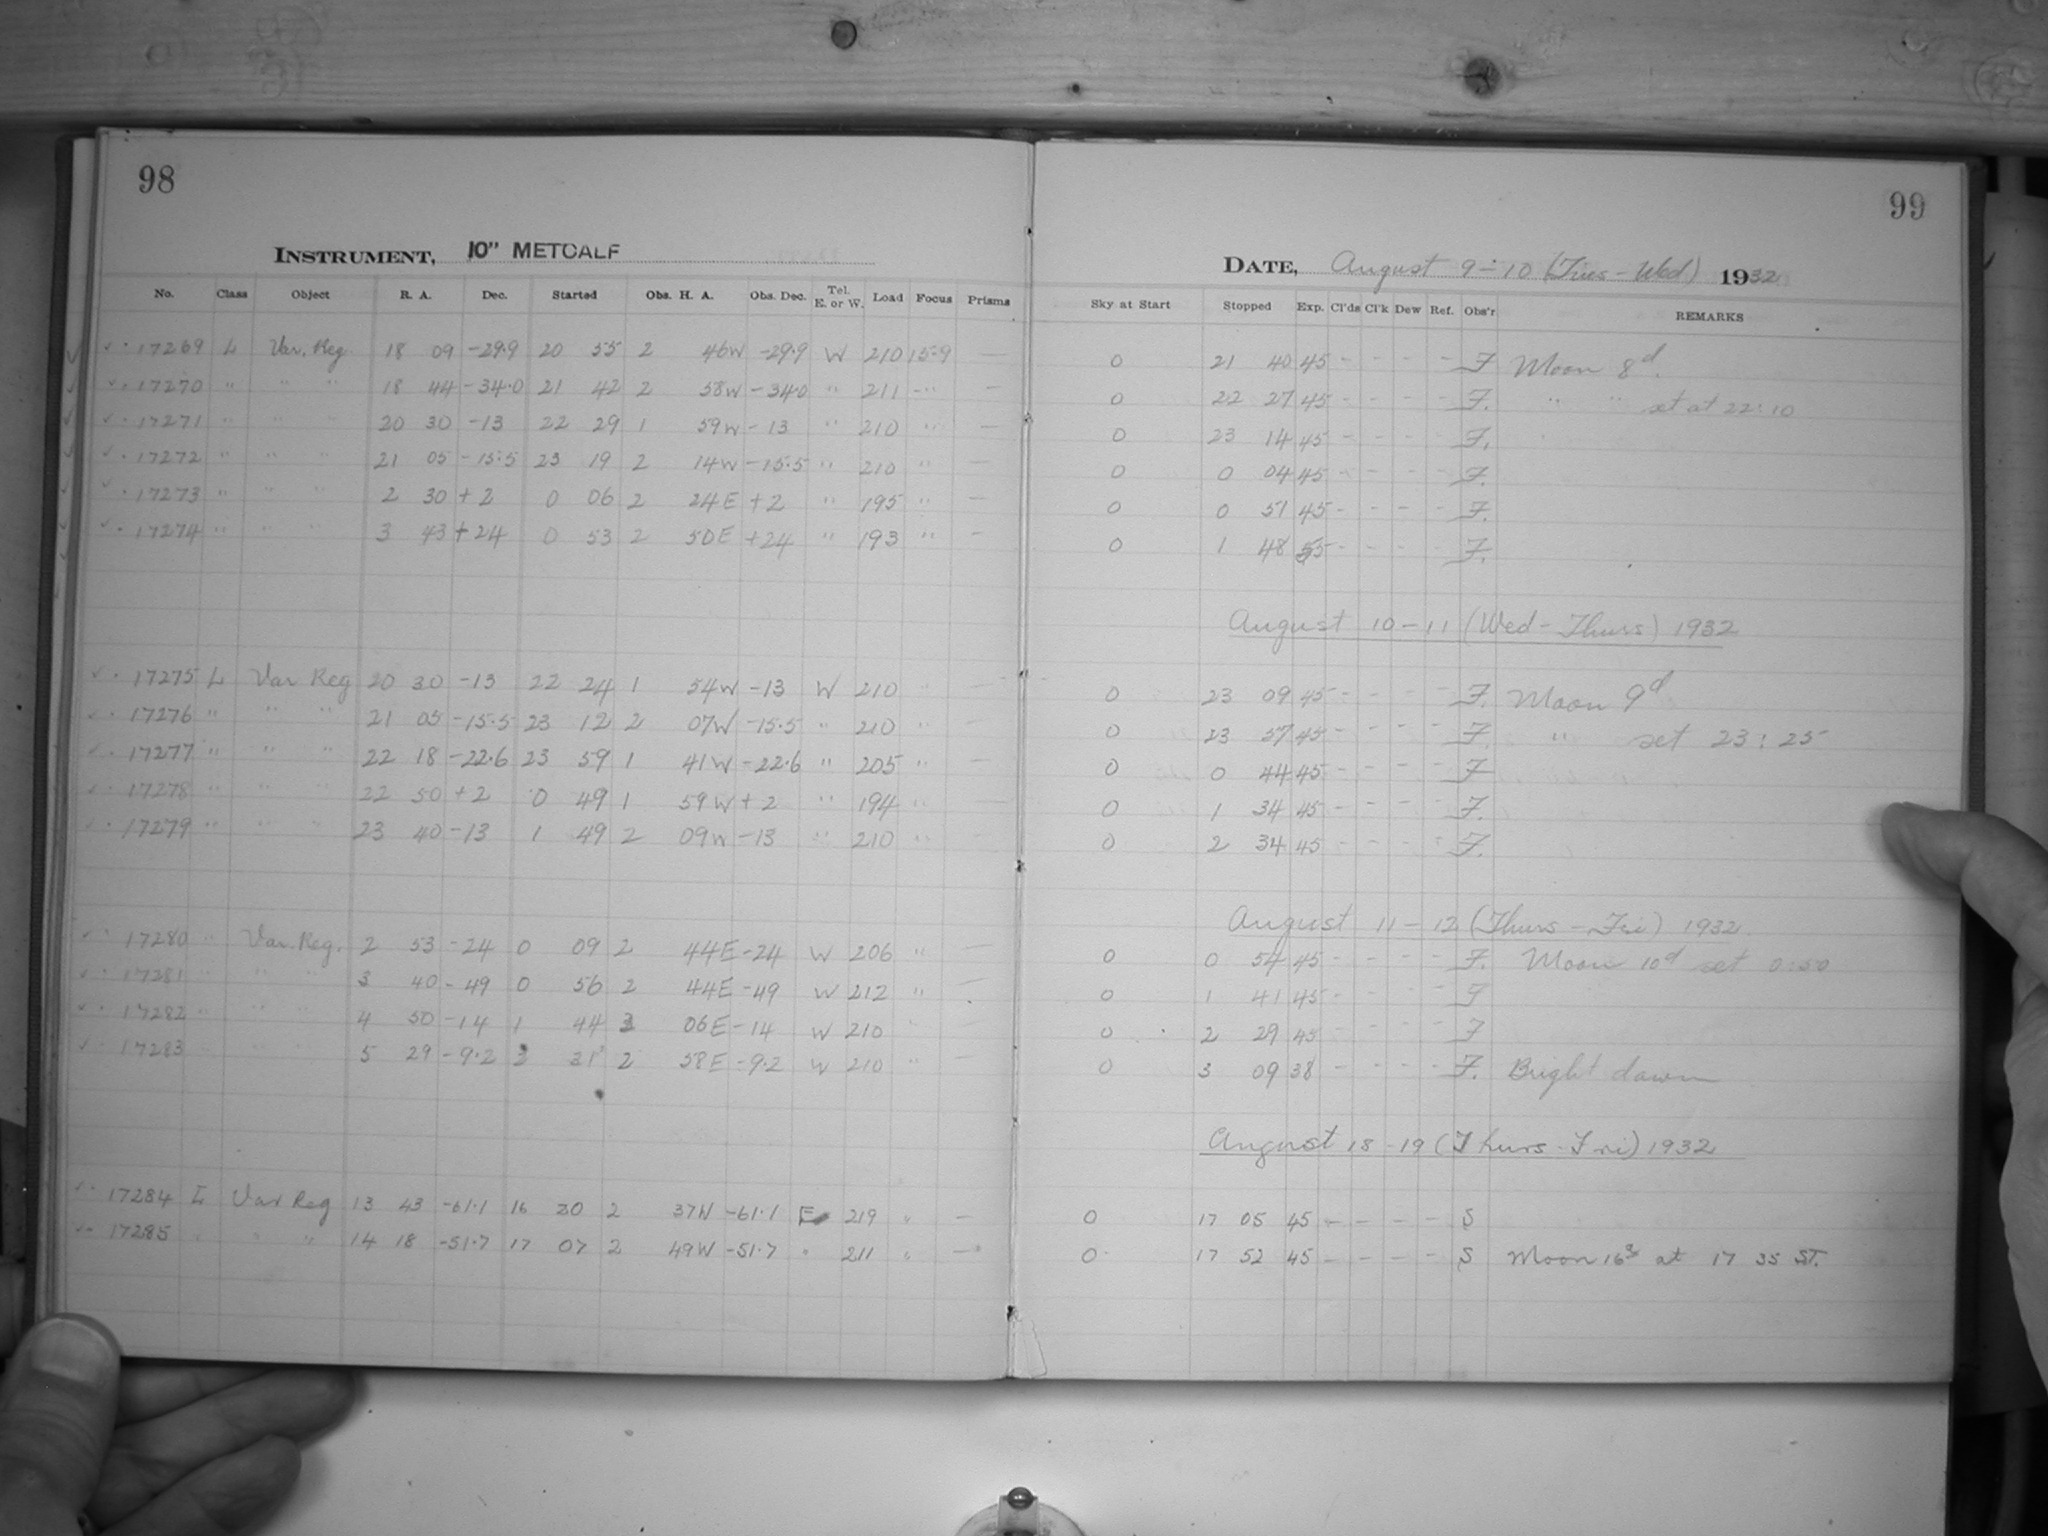 98
INSTRUMENT, 10" METCALF
No. Class Object R. A. Dec. Started Obs. H. A. Obs. Dec. Tel. E. or W. Load Focus Prisms
17269 L Var. Reg 18 09 -29.9 20 55 2 46W -29.9 W 210 15.9 —
17270 " " " 18 44 -34.0 21 42 2 58W -34.0 " 211 -" —
17271 " " " 20 30 -13 22 29 1 59W -13 " 210 " —
17272 " " " 21 05 -15.5 23 19 2 14W -15.5 " 210 " —
17273 " " " 2 30 +2 0 06 2 24E +2 " 195 " —
17274 " " " 3 43 +24 0 53 2 50E +24 " 193 " —
17275 L Var Reg 20 30 -13 22 24 1 54W -13 W 210 " —
17276 " " " 21 05 -15.5 23 12 2 07W -15.5 " 210 " —
17277 " " " 22 18 -22.6 23 59 1 41W -22.6 " 205 " —
17278 " " " 22 50 +2 0 49 1 59W +2 " 194 " —
17279 " " " 23 40 -13 1 49 2 09W -13 " 210 " —
17280 " Var. Reg. 2 53 -24 0 09 2 44E -24 W 206 " —
17281 " " " 3 40 -49 0 56 2 44E -49 W 212 " —
17282 " " " 4 50 -14 1 44 3 06E -14 W 210 " —
17283 " " " 5 29 -9.2 31 2 58E -9.2 W 210 " —
17284 L Var Reg 13 43 -61.1 16 20 2 37W -61.1 E 219 " —
17285 " " " 14 18 -51.7 17 07 2 49W -51.7 " 211 " —
99
DATE, August 9-10 (Tues-Wed) 1932
Sky at Start Stopped Exp. Cl'ds Cl'k Dew Ref. Obs'r REMARKS
0 21 40 45 - - - - F Moon 8d.
0 22 27 45 - - - - F. " " set at 22:10
0 23 14 45 - - - - F.
0 0 04 45 - - - - F.
0 0 51 45 - - - - F.
0 1 48 55 - - - - F.
August 10-11 (Wed-Thurs) 1932
0 23 09 45 - - - - F. Moon 9d
0 23 57 45 - - - - F. " set 23:25
0 0 44 45 - - - - F
0 1 34 45 - - - - F.
0 2 34 45 - - - - F.
August 11-12 (Thurs-Fri) 1932
0 0 54 45 - - - - F. Moon 10d set 0:50
0 1 41 45 - - - - F
0 2 29 45 - - - - F
0 3 09 38 - - - - F. Bright dawn
August 18-19 (Thurs-Fri) 1932
0 17 05 45 - - - - S
0 17 52 45 - - - - S Moon 16d at 17 35 ST.